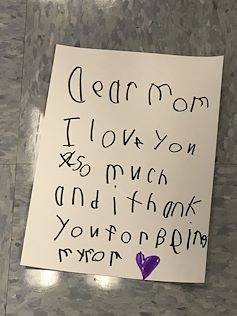 Dear mom
I love you
so much
and i thank
you for Being
my mom